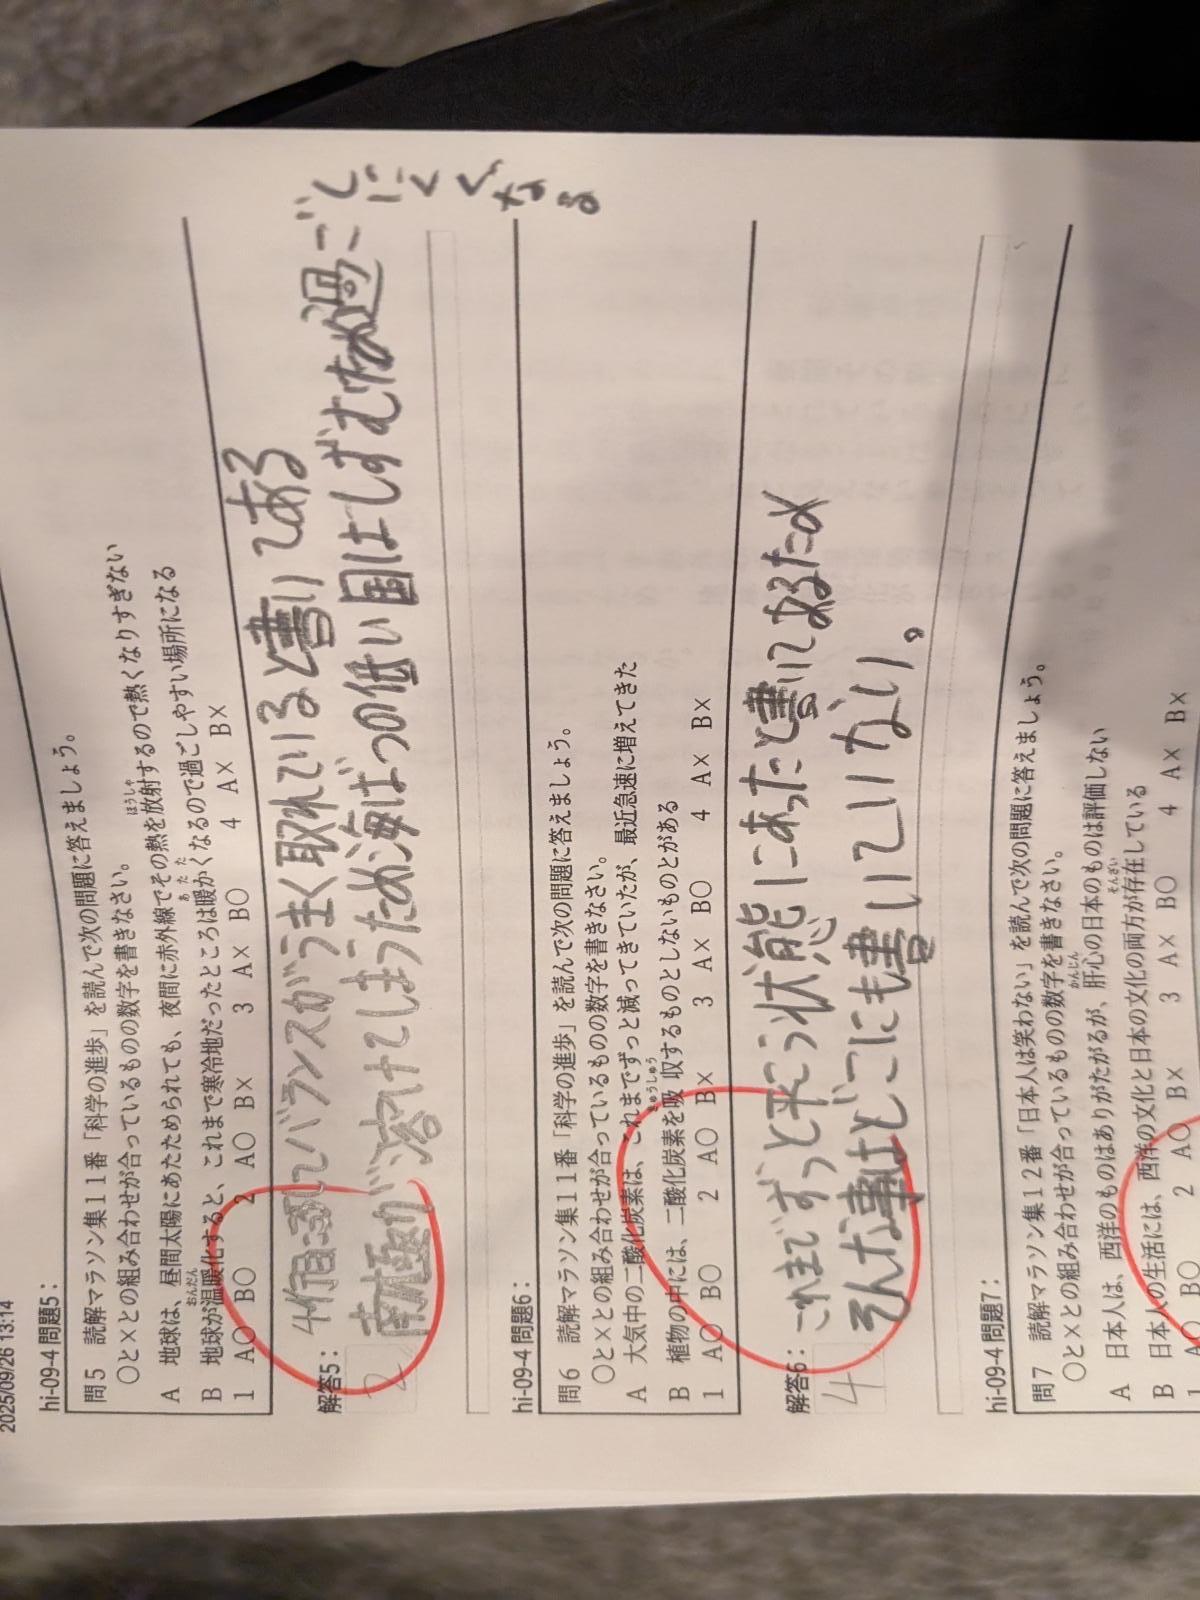 2025/09/26 13:14
hi-09-4 問題5：
問5 読解マラソン集11番「科学の進歩」を読んで次の問題に答えましょう。
○と×との組み合わせが合っているものの数字を書きなさい。
A 地球は、昼間太陽にあたためられても、夜間に赤外線でその熱を放射するので熱くなりすぎない
B 地球が温暖化すると、これまで寒冷地だったところは暖かくなるので過ごしやすい場所になる
1 A○ B○ 2 A○ B× 3 A× B○ 4 A× B×
解答5：
2
バランスがうまく取れていると書いてある
南極が溶けてしまうため海ばつの低い国はしずむため過ごしにくくなる
hi-09-4 問題6：
問6 読解マラソン集11番「科学の進歩」を読んで次の問題に答えましょう。
○と×との組み合わせが合っているものの数字を書きなさい。
A 大気中の二酸化炭素は、これまでずっと減ってきていたが、最近急速に増えてきた
B 植物の中には、二酸化炭素を吸収するものとしないものとがある
1 A○ B○ 2 A○ B× 3 A× B○ 4 A× B×
解答6：
4
これまでずっと平こう状態にあったと書いてあるため
そんな事はどこにも書いていない。
hi-09-4 問題7：
問7 読解マラソン集12番「日本人は笑わない」を読んで次の問題に答えましょう。
○と×との組み合わせが合っているものの数字を書きなさい。
A 日本人は、西洋のものはありがたがるが、肝心の日本のものは評価しない
B 日本人の生活には、西洋の文化と日本の文化の両方が存在している
1 A○ B○ 2 A○ B× 3 A× B○ 4 A× B×